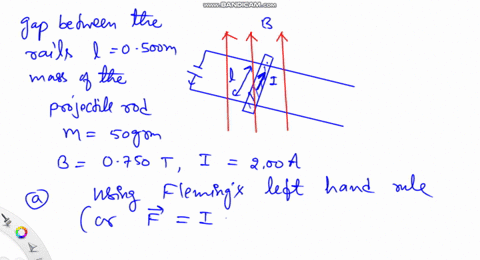 www.BANDICAM.com
gap between the
rails l = 0.500m
mass of the
projectile rod
m = 50grm
B = 0.750 T, I = 2.00A
B
l
I
(a) using Fleming's left hand rule
(or F⃗ = I